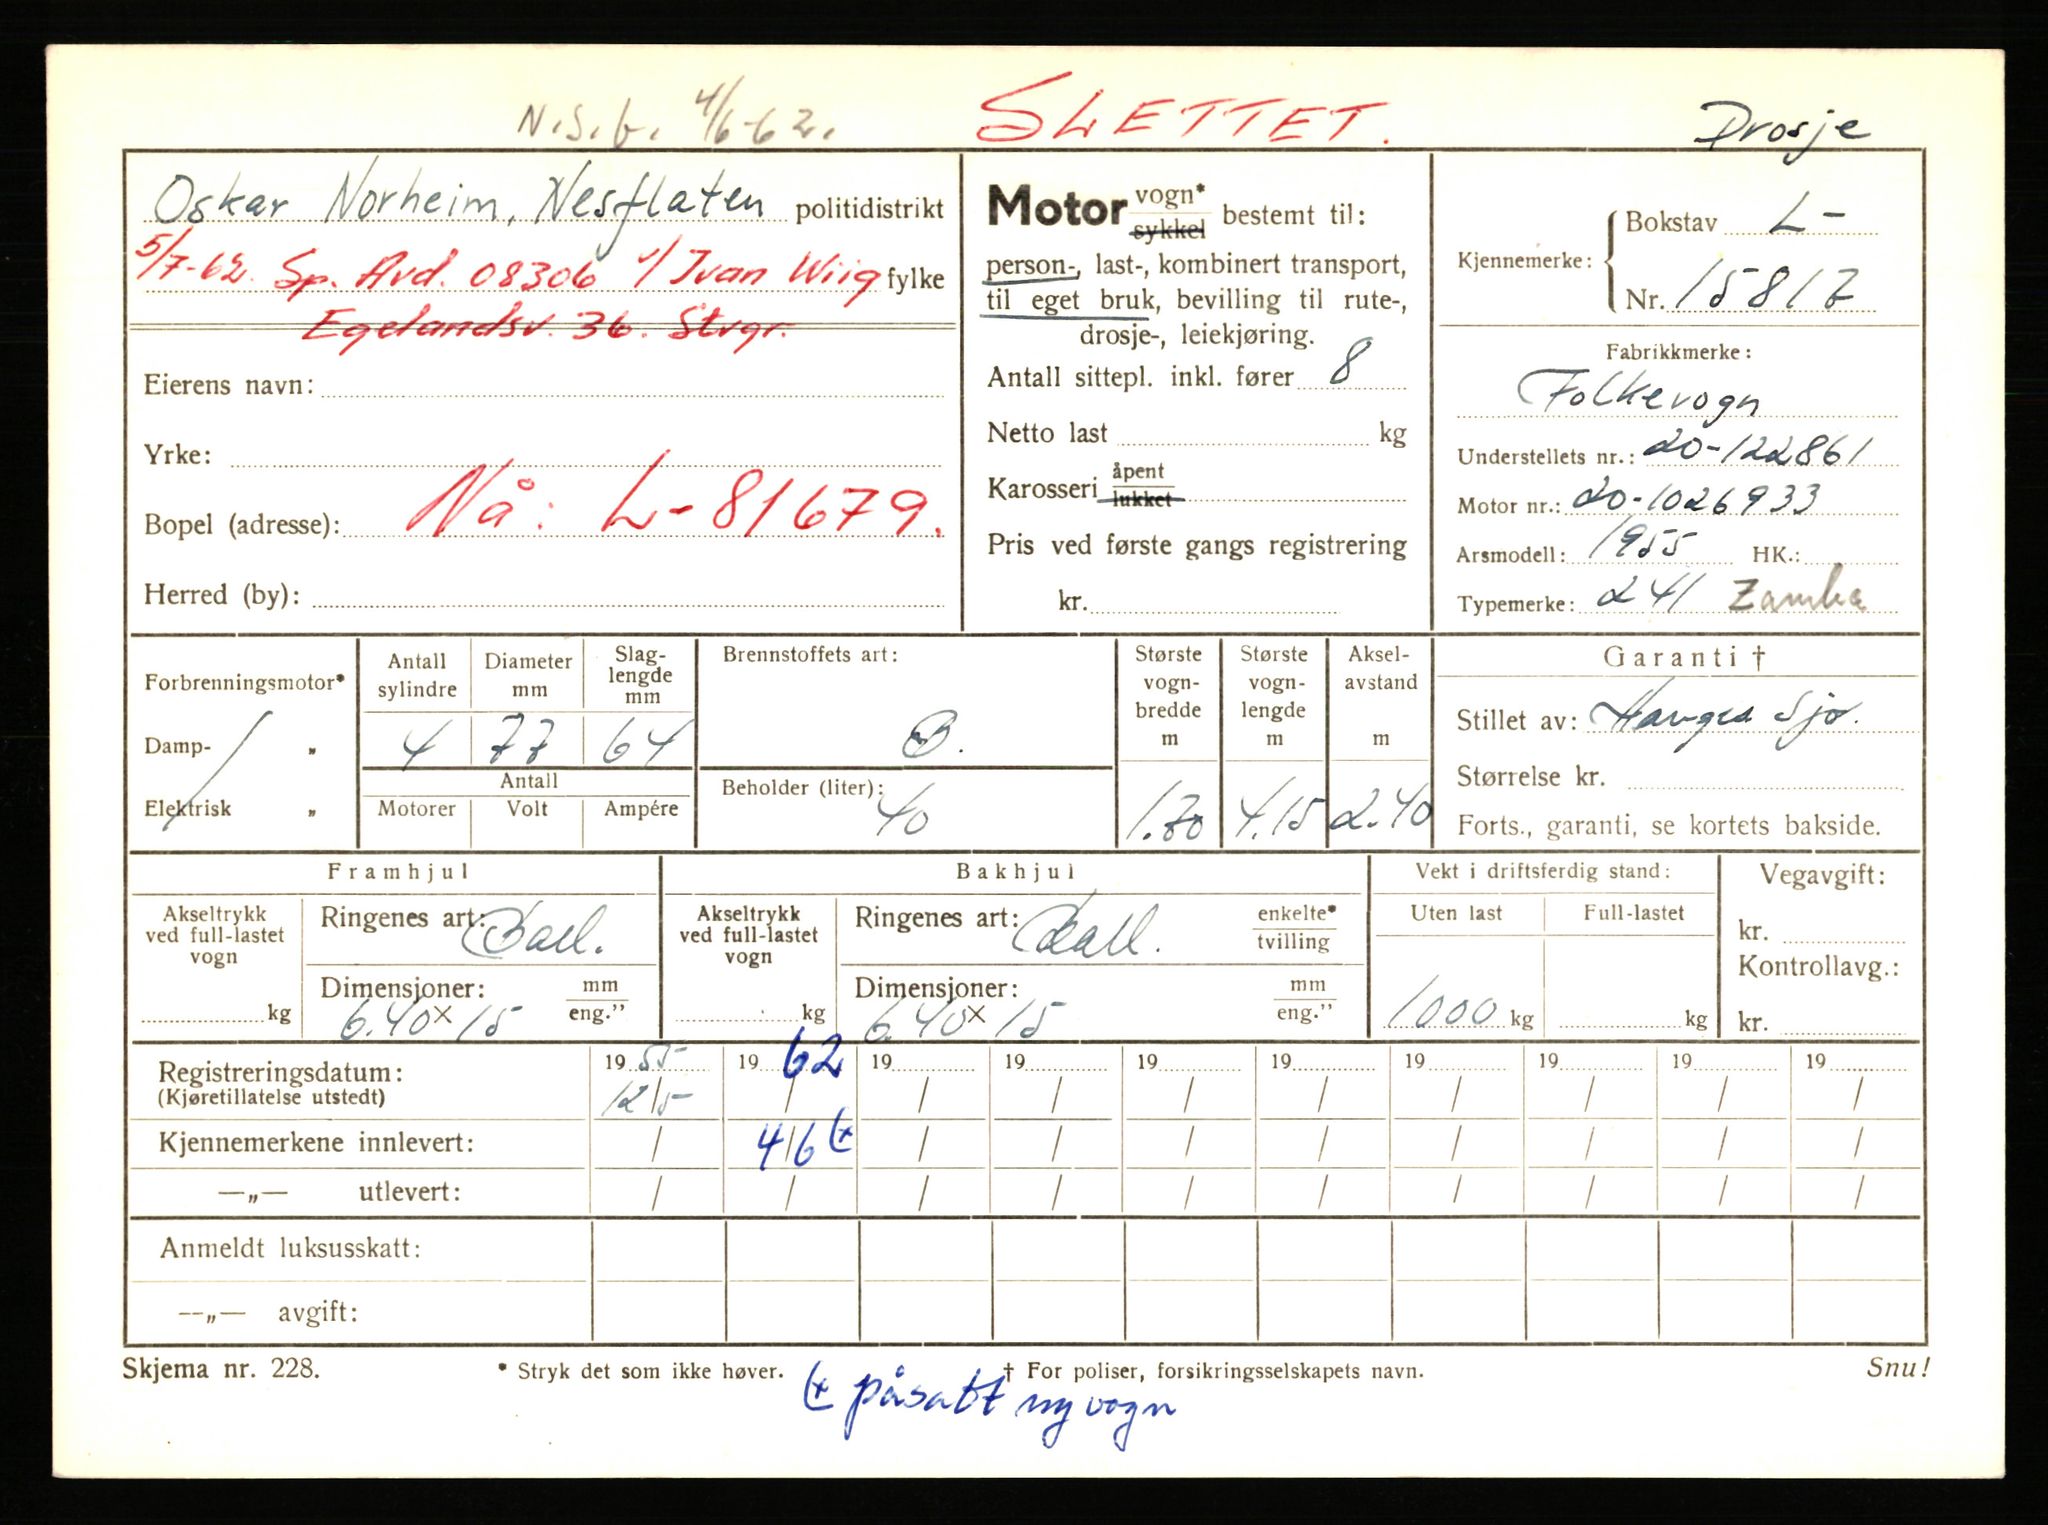 N.S.b. 4/6-62. SLETTET. Drosje
Oskar Norheim, Nesflaten politidistrikt
5/7-62. Sp. Avd. 08306 v/ Ivan Wiig fylke
Egelandsv. 36. Stvgr.
Eierens navn:
Yrke:
Nå: L-81679.
Bopel (adresse):
Herred (by):
Motor vogn* sykkel bestemt til:
person-, last-, kombinert transport,
til eget bruk, bevilling til rute-,
drosje-, leiekjøring.
Antall sittepl. inkl. fører 8
Netto last kg
Karosseri åpent lukket
Pris ved første gangs registrering
kr.
Kjennemerke: Bokstav L-
Nr. 15817
Fabrikkmerke:
Folkevogn
Understellets nr.: 20-122861
Motor nr.: 20-1026933
Årsmodell: 1955 HK.:
Typemerke: 241
Forbrenningsmotor*
Damp- „
Elektrisk „
Antall sylindre 4
Diameter mm 77
Slaglengde mm 64
Antall
Motorer Volt Ampére
Brennstoffets art:
B.
Beholder (liter):
40
Største vognbredde m 1.70
Største vognlengde m 4.15
Akselavstand m 2.40
Garanti †
Stillet av:
Størrelse kr.
Forts., garanti, se kortets bakside.
Framhjul
Akseltrykk ved full-lastet vogn
kg
Ringenes art: Ball.
Dimensjoner: mm eng."
6.40 x 15
Bakhjul
Akseltrykk ved full-lastet vogn
kg
Ringenes art: Ball. enkelte* tvilling
Dimensjoner: mm eng."
6.40 x 15
Vekt i driftsferdig stand:
Uten last Full-lastet
1000 kg kg
Vegavgift:
kr.
Kontrollavg.:
kr.
Registreringsdatum: 19 55 19 62 19 19 19 19 19 19 19 19
(Kjøretillatelse utstedt) 12/5 / / / / / / / / /
Kjennemerkene innlevert: / 4/6 (x / / / / / / / /
—„— utlevert: / / / / / / / / / /
Anmeldt luksusskatt:
—„— avgift:
Skjema nr. 228. * Stryk det som ikke høver. † For poliser, forsikringsselskapets navn. Snu!
(x påsatt ny vogn